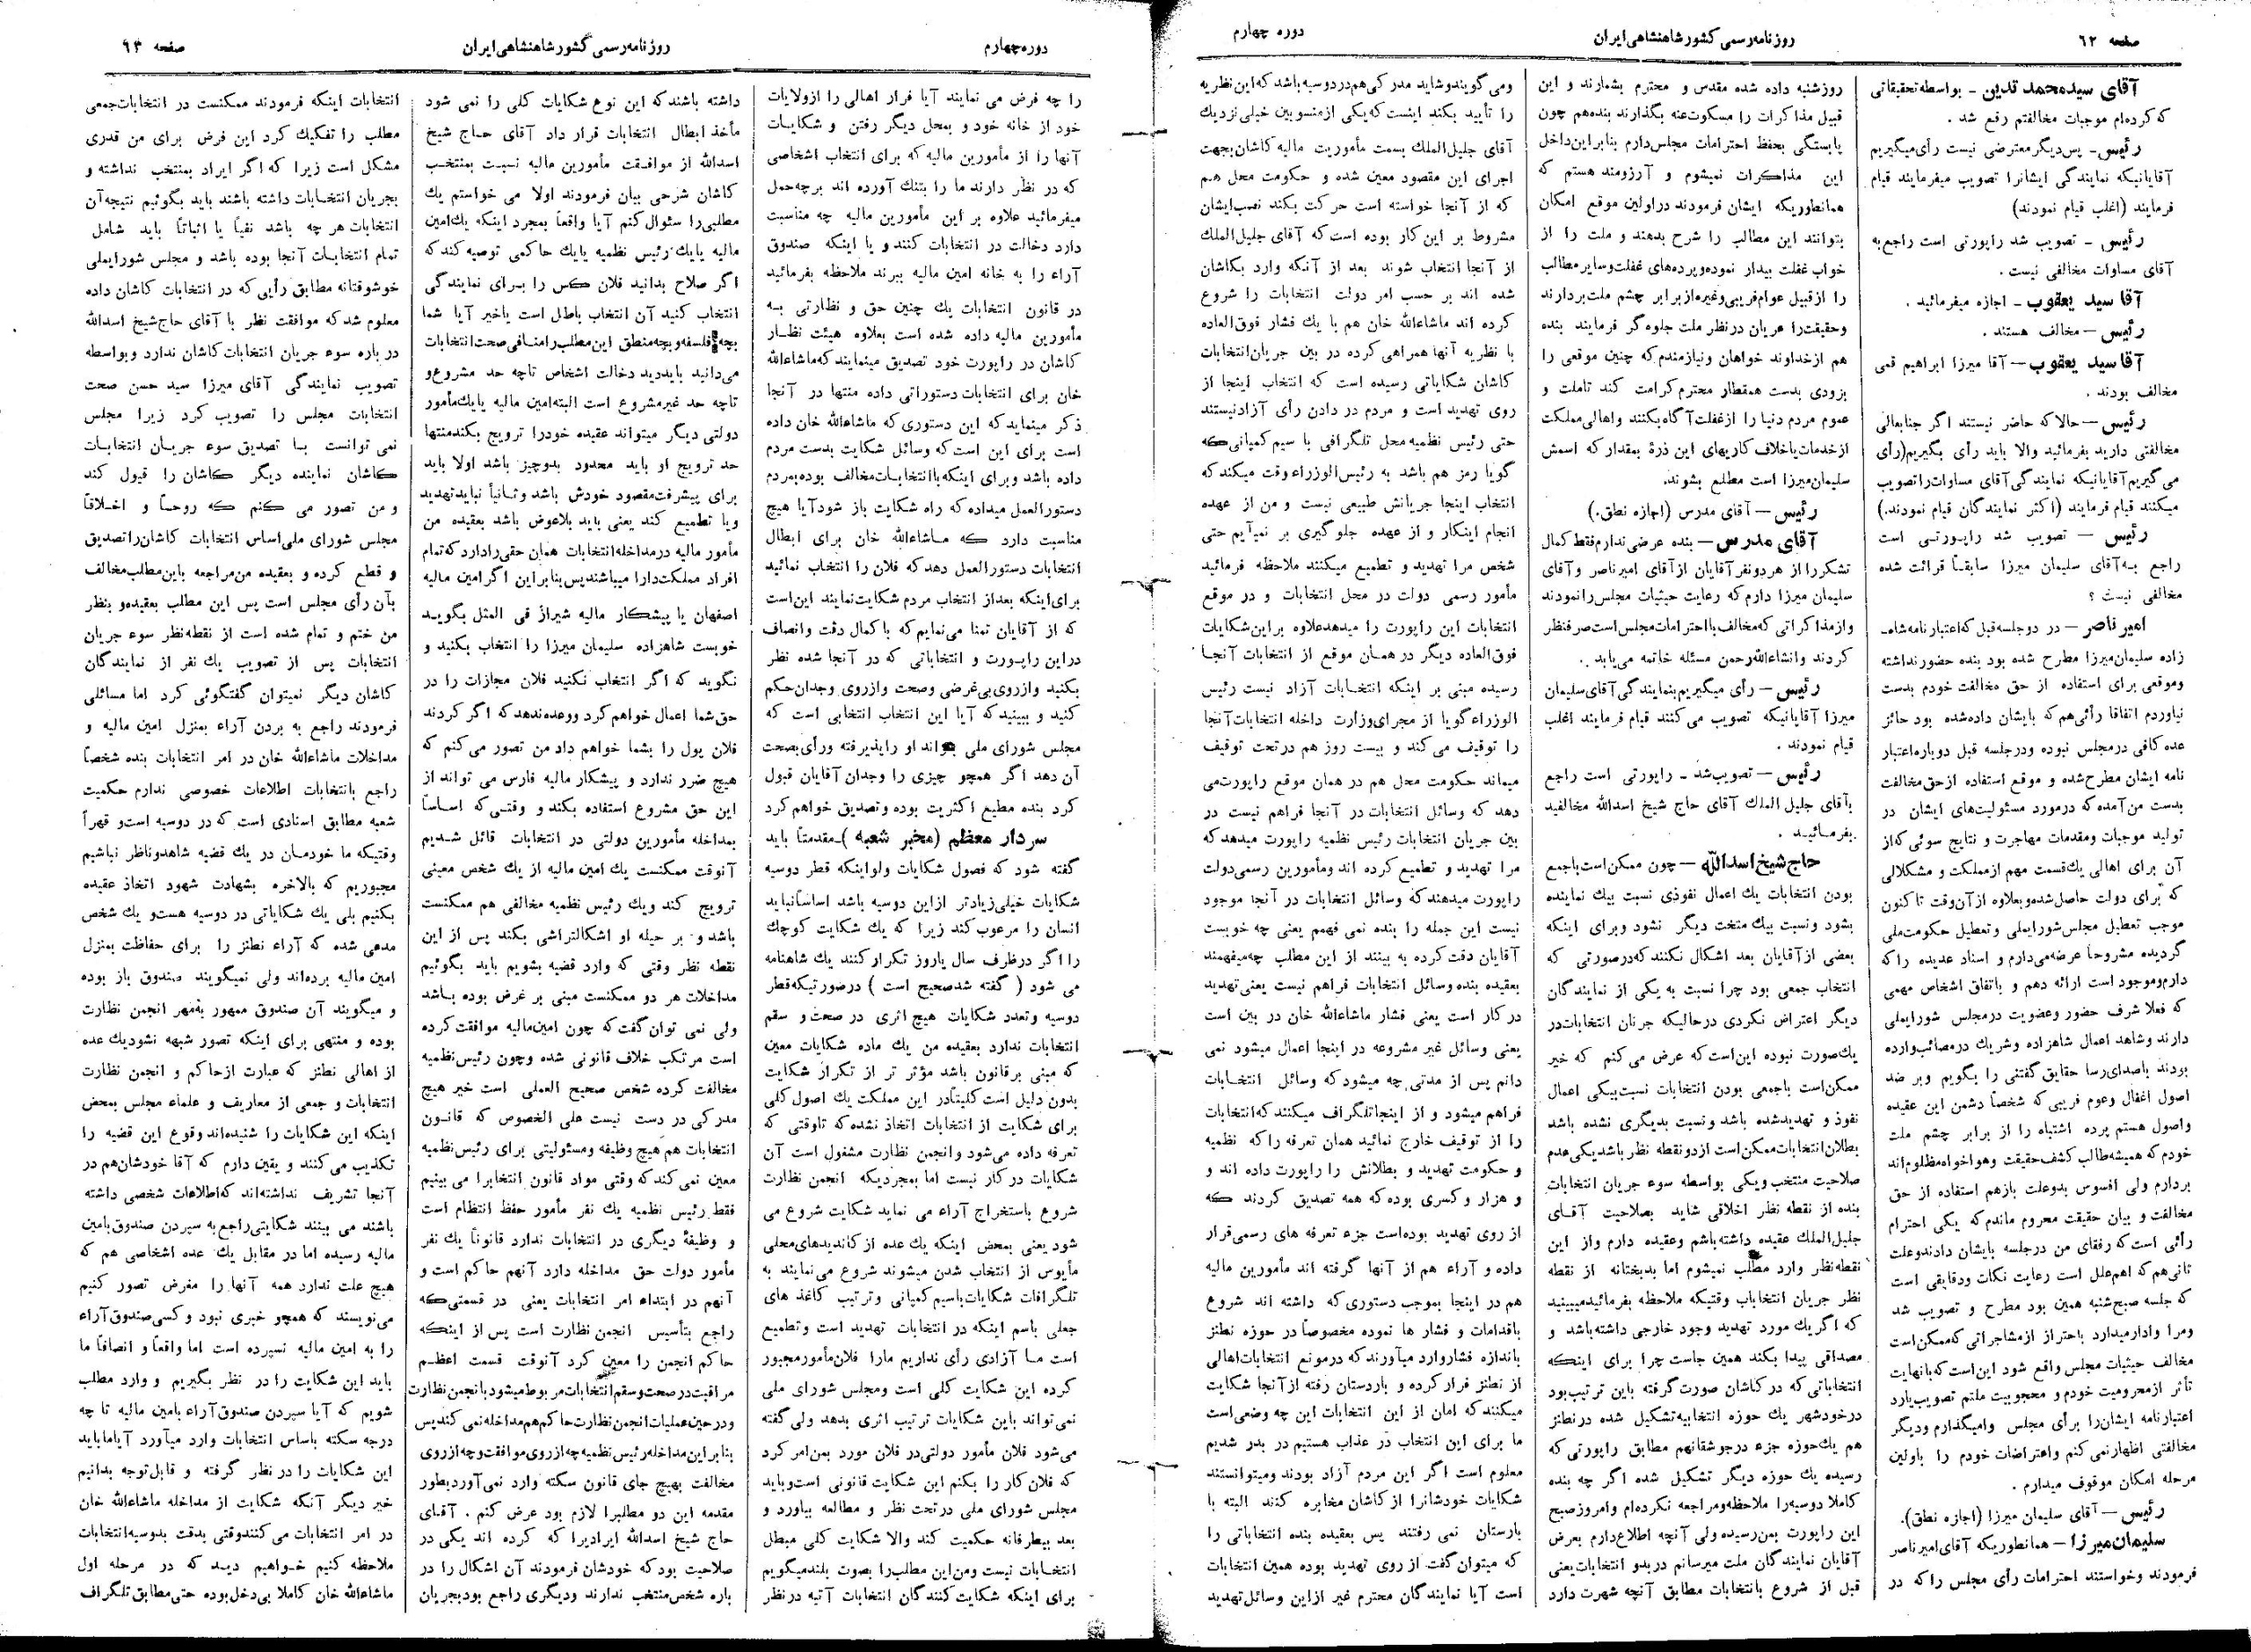 صفحه ۶۲
روزنامه رسمی کشور شاهنشاهی ایران
دوره چهارم
آقای سید محمد تدین ـ بواسطه تحقیقاتی
که کرده‌ام موجبات مخالفتم رفع شد .
رئیس ـ پس دیگر معترضی نیست رأی میگیریم
آقایانیکه نمایندگی ایشانرا تصویب میفرمایند قیام
فرمایند (اغلب قیام نمودند)
رئیس ـ تصویب شد راپورتی است راجع به
آقای مساوات مخالفی نیست .
آقا سید یعقوب ـ اجازه میفرمائید .
رئیس — مخالف هستند .
آقا سید یعقوب — آقا میرزا ابراهیم قمی
مخالف بودند .
رئیس — حالا که حاضر نیستند اگر جنابعالی
مخالفتی دارید بفرمائید والا باید رأی بگیریم (رأی
می گیریم آقایانیکه نمایندگی آقای مساوات را تصویب
میکنند قیام فرمایند (اکثر نمایندگان قیام نمودند.)
رئیس — تصویب شد راپورتی است
راجع به آقای سلیمان میرزا سابقاً قرائت شده
مخالفی نیست ؟
امیر ناصر — در دو جلسه قبل که اعتبارنامه شاه‍
زاده سلیمان میرزا مطرح شده بود بنده حضور نداشته
وموقعی برای استفاده از حق مخالفت خودم بدست
نیاوردم اتفاقا رأئی هم که بایشان داده شده بود حائز
عده کافی در مجلس نبوده ودرجلسه قبل دوباره اعتبار
نامه ایشان مطرح شده و موقع استفاده از حق مخالفت
بدست من آمده که درمورد مسئولیت‌های ایشان در
تولید موجبات ومقدمات مهاجرت و نتایج سوئی که از
آن برای اهالی یك قسمت مهم از مملکت و مشکلاتی
که برای دولت حاصل شده وبعلاوه از آن وقت تا کنون
موجب تعطیل مجلس شورایملی وتعطیل حکومت ملی
گردیده مشروحاً عرضه می‌دارم و اسناد عدیده را که
دارم وموجود است ارائه دهم و باتفاق اشخاص مهمی
که فعلا شرف حضور وعضویت درمجلس شورایملی
دارند وشاهد اعمال شاهزاده وشریك در مصائب وارده
بودند باصدای رسا حقایق گفتنی را بگویم وبر ضد
اصول اغفال وعوم فریبی که شخصاً دشمن این عقیده
واصول هستم پرده اشتباه را از برابر چشم ملت
خودم که همیشه طالب کشف حقیقت وهواخواه مظلوم‌اند
بردارم ولی افسوس بدو علت بازهم استفاده از حق
مخالفت و بیان حقیقت محروم ماندم که یکی احترام
رأئی است که رفقای من درجلسه بایشان دادند وعلت
ثانی هم که اهم علل است رعایت نکات ودقایقی است
که جلسه صبح شنبه همین بود مطرح و تصویب شد
ومرا وادار میدارد باحتراز از مشاجراتی که ممکن است
مخالف حیثیات مجلس واقع شود این است که بانهایت
تأثر از محرومیت خودم و محجوبیت ملتم تصویب یا رد
اعتبارنامه ایشان را برأی مجلس وامیگذارم ودیگر
مخالفتی اظهار نمی کنم واعتراضات خودم را باولین
مرحله امکان موقوف میدارم .
رئیس — آقای سلیمان میرزا (اجازه نطق).
سلیمان میرزا — همانطوریکه آقای امیر ناصر
فرمودند وخواستند احترامات رأی مجلس را که در
روز شنبه داده شده مقدس و محترم بشمارند و این
قبیل مذاکرات را مسکوت عنه بگذارند بنده هم چون
پابستگی بحفظ احترامات مجلس دارم بنابراین داخل
این مذاکرات نمیشوم و آرزومند هستم که
همانطوریکه ایشان فرمودند در اولین موقع امکان
بتوانند این مطالب را شرح بدهند و ملت را از
خواب غفلت بیدار نموده و پرده‌های غفلت وسایر مطالب
را از قبیل عوام فریبی وغیره از برابر چشم ملت بردارند
وحقیقت را عریان در نظر ملت جلوه گر فرمایند بنده
هم از خداوند خواهان ونیازمندم که چنین موقعی را
بزودی بدست همقطار محترم کرامت کند تاملت و
عموم مردم دنیا را از غفلت آگاه بکنند واهالی مملکت
از خدمات یا خلاف کاریهای این ذرۀ بمقدار که اسمش
سلیمان میرزا است مطلع بشوند.
رئیس — آقای مدرس (اجازه نطق.)
آقای مدرس — بنده عرضی ندارم فقط کمال
تشکر را از هر دو نفر آقایان از آقای امیر ناصر و آقای
سلیمان میرزا دارم که رعایت حیثیات مجلس را نمودند
و از مذاکراتی که مخالف با احترامات مجلس است صرفنظر
کردند وانشاءالله رحمن مسئله خاتمه می‌یابد .
رئیس — رأی میگیریم بنمایندگی آقای سلیمان
میرزا آقایانیکه تصویب می کنند قیام فرمایند اغلب
قیام نمودند .
رئیس — تصویب شد ـ راپورتی است راجع
بآقای جلیل الملك آقای حاج شیخ اسدالله مخالفید
بفرمائید .
حاج شیخ اسدالله — چون ممکن است باجمع
بودن انتخابات یك اعمال نفوذی نسبت بیك نماینده
بشود ونسبت بیك متخت دیگر نشود وبرای اینکه
بعضی از آقایان بعد اشکال نکنند که در صورتی که
انتخاب جمعی بود چرا نسبت به یکی از نمایندگان
دیگر اعتراض نکردی درحالیکه جریان انتخابات در
یك صورت نبوده این است که عرض می کنم که خیر
ممکن است باجمعی بودن انتخابات نسبت بیکی اعمال
نفوذ و تهدید شده باشد ونسبت بدیگری نشده باشد
بطلان انتخابات ممکن است از دو نقطه نظر باشد یکی عدم
صلاحیت منتخب ویکی بواسطه سوء جریان انتخابات
بنده از نقطه نظر اخلاقی شاید بصلاحیت آقای
جلیل الملك عقیده داشته باشم وعقیده دارم واز این
نقطه نظر وارد مطلب نمیشوم اما بدبختانه از نقطه
نظر جریان انتخابات وقتیکه ملاحظه بفرمائید میبینید
که اگر یك مورد تهدید وجود خارجی داشته باشد و
مصداقی پیدا بکند همین جاست چرا برای اینکه
انتخاباتی که در کاشان صورت گرفته باین ترتیب بود
درخودشهر یك حوزه انتخابیه تشکیل شده در نطنز
هم یك حوزه جزء درجوشقانهم مطابق راپورتی که
رسیده یك حوزه دیگر تشکیل شده اگر چه بنده
کاملا دوسیه را ملاحظه ومراجعه نکرده‌ام وامروز صبح
این راپورت بمن رسیده ولی آنچه اطلاع دارم بعرض
آقایان نمایندگان ملت میرسانم در بدو انتخابات یعنی
قبل از شروع بانتخابات مطابق آنچه شهرت دارد
ومی گویند وشاید مدرکی هم در دوسیه باشد که این نظریه
را تأیید بکند اینست که یکی از منسوبین خیلی نزدیك
آقای جلیل الملك بسمت مأموریت مالیه کاشان بجهت
اجرای این مقصود معین شده و حکومت محل هم
که از آنجا خواسته است حرکت بکند نصب ایشان
مشروط بر این کار بوده است که آقای جلیل الملك
از آنجا انتخاب شوند بعد از آنکه وارد بکاشان
شده اند بر حسب امر دولت انتخابات را شروع
کرده اند ماشاءالله خان هم با یك فشار فوق العاده
با نظریه آنها همراهی کرده در بین جریان انتخابات
کاشان شکایاتی رسیده است که انتخاب اینجا از
روی تهدید است و مردم در دادن رأی آزاد نیستند
حتی رئیس نظمیه محل تلگرافی با سیم کمپانی که
گویا رمز هم باشد به رئیس الوزراء وقت میکند که
انتخاب اینجا جریانش طبیعی نیست و من از عهده
انجام اینکار و از عهده جلوگیری بر نمیآیم حتی
شخص مرا تهدید و تطمیع میکنند ملاحظه فرمائید
مأمور رسمی دولت در محل انتخابات و در موقع
انتخابات این راپورت را میدهد علاوه بر این شکایات
فوق العاده دیگر در همان موقع از انتخابات آنجا
رسیده مبنی بر اینکه انتخابات آزاد نیست رئیس
الوزراء گویا از مجرای وزارت داخله انتخابات آنجا
را توقیف می کند و بیست روز هم در تحت توقیف
میماند حکومت محل هم در همان موقع راپورت می
دهد که وسائل انتخابات در آنجا فراهم نیست در
بین جریان انتخابات رئیس نظمیه راپورت میدهد که
مرا تهدید و تطمیع کرده اند ومأمورین رسمی دولت
راپورت میدهند که وسائل انتخابات در آنجا موجود
نیست این جمله را بنده نمی فهمم یعنی چه خوبست
آقایان دقت کرده به بینند از این مطلب چه میفهمند
بعقیده بنده وسائل انتخابات فراهم نیست یعنی تهدید
در کار است یعنی فشار ماشاءالله خان در بین است
یعنی وسائل غیر مشروعه در اینجا اعمال میشود نمی
دانم پس از مدتی چه میشود که وسائل انتخابات
فراهم میشود و از اینجا تلگراف میکنند که انتخابات
را از توقیف خارج نمائید همان تعرفه را که نظمیه
و حکومت تهدید و بطلانش را راپورت داده اند و
و هزار و کسری بوده که همه تصدیق کردند که
از روی تهدید بوده است جزء تعرفه های رسمی قرار
داده و آراء هم از آنها گرفته اند مأمورین مالیه
هم در اینجا بموجب دستوری که داشته اند شروع
باقدامات و فشار ها نموده مخصوصاً در حوزه نطنز
باندازه فشار وارد میآورند که درموقع انتخابات اهالی
از نطنز فرار کرده و باردستان رفته از آنجا شکایت
میکنند که امان از این انتخابات این چه وضعی است
ما برای این انتخاب در عذاب هستیم در بدر شدیم
معلوم است اگر این مردم آزاد بودند ومیتوانستند
شکایات خودشانرا از کاشان مخابره کنند البته با
بارستان نمی رفتند پس بعقیده بنده انتخاباتی را
که میتوان گفت از روی تهدید بوده همین انتخابات
است آیا نمایندگان محترم غیر از این وسائل تهدید
دوره چهارم
روزنامه رسمی کشور شاهنشاهی ایران
صفحه ۶۳
را چه فرض می نمایند آیا فرار اهالی را از ولایات
خود از خانه خود و بمحل دیگر رفتن و شکایات
آنها را از مأمورین مالیه که برای انتخاب اشخاصی
که در نظر دارند ما را بتنك آورده اند برچه حمل
میفرمائید علاوه بر این مأمورین مالیه چه مناسبت
دارد دخالت در انتخابات کنند و یا اینکه صندوق
آراء را به خانه امین مالیه ببرند ملاحظه بفرمائید
در قانون انتخابات یك چنین حق و نظارتی به
مأمورین مالیه داده شده است بعلاوه هیئت نظار
کاشان در راپورت خود تصدیق مینمایند که ماشاءالله
خان برای انتخابات دستوراتی داده منتها در آنجا
ذکر مینماید که این دستوری که ماشاءالله خان داده
است برای این است که وسائل شکایت بدست مردم
داده باشد وبرای اینکه باانتخابات مخالف بوده بمردم
دستورالعمل میداده که راه شکایت باز شود آیا هیچ
مناسبت دارد که ماشاءالله خان برای ابطال
انتخابات دستورالعمل دهد که فلان را انتخاب نمائید
برای اینکه بعد از انتخاب مردم شکایت نمایند این است
که از آقایان تمنا می‌نمایم که با کمال دقت وانصاف
در این راپورت و انتخاباتی که در آنجا شده نظر
بکنید وازروی بی غرضی وصحت وازروی وجدان حکم
کنید و ببینید که آیا این انتخاب انتخابی است که
مجلس شورای ملی بتواند او را پذیرفته ورأی بصحت
آن دهد اگر همچو چیزی را وجدان آقایان قبول
کرد بنده مطیع اکثریت بوده و تصدیق خواهم کرد
سردار معظم (مخبر شعبه ) ـ مقدمتاً باید
گفته شود که فصول شکایات ولو اینکه قطر دوسیه
شکایات خیلی زیادتر ازاین دوسیه باشد اساساً نباید
انسان را مرعوب کند زیرا که یك شکایت کوچك
را اگر درظرف سال یاروز تکرار کنند یك شاهنامه
می شود ( گفته شد صحیح است ) درصورتیکه قطر
دوسیه وتعدد شکایات هیچ اثری در صحت و سقم
انتخابات ندارد بعقیده من یك ماده شکایات معین
که مبنی بر قانون باشد مؤثر تر از تکرار شکایت
بدون دلیل است کلیتاً در این مملکت یك اصول کلی
برای شکایت از انتخابات اتخاذ نشده که تاوقتی که
تعرفه داده می‌شود وانجمن نظارت مشغول است آن
شکایات در کار نیست اما بمجردیکه انجمن نظارت
شروع باستخراج آراء می نماید شکایت شروع می
شود یعنی بمحض اینکه یك عده از کاندیدهای محلی
مأیوس از انتخاب شدن میشوند شروع می‌نمایند به
تلگرافات شکایات باسیم کمپانی وترتیب کاغذ های
جعلی باسم اینکه در انتخابات تهدید است وتطمیع
است ما آزادی رأی نداریم مارا فلان مأمور مجبور
کرده این شکایت کلی است ومجلس شورای ملی
نمی‌تواند باین شکایات ترتیب اثری بدهد ولی گفته
می‌شود فلان مأمور دولتی در فلان مورد بمن امر کرد
که فلان کار را بکنم این شکایت قانونی است و باید
مجلس شورای ملی درتحت نظر و مطالعه بیاورد و
بعد بیطرفانه حکمیت کند والا شکایت کلی مبطل
انتخابات نیست ومن این مطلب را بصوت بلند میگویم
برای اینکه شکایت کنندگان انتخابات آتیه در نظر
داشته باشند که این نوع شکایات کلی را نمی شود
مأخذ ابطال انتخابات قرار داد آقای حاج شیخ
اسدالله از موافقت مأمورین مالیه نسبت بمنتخب
کاشان شرحی بیان فرمودند اولا می خواستم یك
مطلبی را سئوال کنم آیا واقعاً بمجرد اینکه یك امین
مالیه یا یك رئیس نظمیه یا یك حاکمی توصیه کند که
اگر صلاح بدانید فلان کس را برای نمایندگی
انتخاب کنید آن انتخاب باطل است یاخیر آیا شما
بچه فلسفه و بچه منطق این مطلب را منافی صحت انتخابات
می‌دانید باید دید دخالت اشخاص تاچه حد مشروع و
تاچه حد غیر مشروع است البته امین مالیه یا یك مأمور
دولتی دیگر میتواند عقیده خودرا ترویج بکند منتها
حد ترویج او باید محدود بدو چیز باشد اولا باید
برای پیشرفت مقصود خودش باشد وثانیاً نباید تهدید
ویا تطمیع کند یعنی باید بلاعوض باشد بعقیده من
مأمور مالیه در مداخله انتخابات همان حقی را دارد که تمام
افراد مملکت دارا میباشند پس بنابراین اگر امین مالیه
اصفهان یا پیشکار مالیه شیراز فی المثل بگوید
خوبست شاهزاده سلیمان میرزا را انتخاب بکنید و
نگوید که اگر انتخاب نکنید فلان مجازات را در
حق شما اعمال خواهم کرد ووعده ندهد که اگر کردند
فلان پول را بشما خواهم داد من تصور می کنم که
هیچ ضرر ندارد و پیشکار مالیه فارس می تواند از
این حق مشروع استفاده بکند و وقتی که اساساً
بمداخله مأمورین دولتی در انتخابات قائل شدیم
آنوقت ممکنست یك امین مالیه از یك شخص معینی
ترویج کند ویك رئیس نظمیه مخالفی هم ممکنست
باشد و بر حیله او اشکالتراشی بکند پس از این
نقطه نظر وقتی که وارد قضیه بشویم باید بگوئیم
مداخلات هر دو ممکنست مبنی بر غرض بوده باشد
ولی نمی توان گفت که چون امین مالیه موافقت کرده
است مرتکب خلاف قانونی شده وچون رئیس نظمیه
مخالفت کرده شخص صحیح العملی است خیر هیچ
مدرکی در دست نیست علی الخصوص که قانون
انتخابات هم هیچ وظیفه ومسئولیتی برای رئیس نظمیه
معین نمی کند که وقتی مواد قانون انتخابرا می بینیم
فقط رئیس نظمیه یك نفر مأمور حفظ انتظام است
و وظیفۀ دیگری در انتخابات ندارد قانوناً یك نفر
مأمور دولت حق مداخله دارد آنهم حاکم است و
آنهم در ابتداء امر انتخابات یعنی در قسمتی که
راجع بتأسیس انجمن نظارت است پس از اینکه
حاکم انجمن را معین کرد آنوقت قسمت اعظم
مراقبت در صحت و سقم انتخابات مربوط میشود بانجمن نظارت
و در حین عملیات انجمن نظارت حاکم هم مداخله نمی کند پس
بنابراین مداخله رئیس نظمیه چه از روی موافقت وچه از روی
مخالفت بهیچ جای قانون سکته وارد نمی‌آورد بطور
مقدمه این دو مطلبرا لازم بود عرض کنم . آقای
حاج شیخ اسدالله ایرادیرا که کرده اند یکی در
صلاحیت بود که خودشان فرمودند آن اشکال را در
باره شخص منتخب ندارند ودیگری راجع بود بجریان
انتخابات اینکه فرمودند ممکنست در انتخابات جمعی
مطلب را تفکیك کرد این فرض برای من قدری
مشکل است زیرا که اگر ایراد بمنتخب نداشته و
بجریان انتخابات داشته باشند باید بگوئیم نتیجه آن
انتخابات هر چه باشد نفیاً یا اثباتاً باید شامل
تمام انتخابات آنجا بوده باشد و مجلس شورایملی
خوشوقتانه مطابق رأیی که در انتخابات کاشان داده
معلوم شد که موافقت نظر با آقای حاج شیخ اسدالله
در باره سوء جریان انتخابات کاشان ندارد وبواسطه
تصویب نمایندگی آقای میرزا سید حسن صحت
انتخابات مجلس را تصویب کرد زیرا مجلس
نمی توانست با تصدیق سوء جریان انتخابات
کاشان نماینده دیگر کاشان را قبول کند
و من تصور می کنم که روحاً و اخلاقاً
مجلس شورای ملی اساس انتخابات کاشان را تصدیق
و قطع کرده و بعقیده من مراجعه باین مطلب مخالف
بآن رأی مجلس است پس این مطلب بعقیده و بنظر
من ختم و تمام شده است از نقطه نظر سوء جریان
انتخابات پس از تصویب یك نفر از نمایندگان
کاشان دیگر نمیتوان گفتگوئی کرد اما مسائلی
فرمودند راجع به بردن آراء بمنزل امین مالیه و
مداخلات ماشاءالله خان در امر انتخابات بنده شخصاً
راجع بانتخابات اطلاعات خصوصی ندارم حکمیت
شعبه مطابق اسنادی است که در دوسیه است و قهراً
وقتیکه ما خودمان در یك قضیه شاهد وناظر نباشیم
مجبوریم که بالاخره بشهادت شهود اتخاذ عقیده
بکنیم بلی یك شکایاتی در دوسیه هست ویك شخص
مدعی شده که آراء نطنز را برای حفاظت بمنزل
امین مالیه برده‌اند ولی نمیگویند صندوق باز بوده
و میگویند آن صندوق ممهور به مهر انجمن نظارت
بوده و منتهی برای اینکه تصور شبهه نشود یك عده
از اهالی نطنز که عبارت از حاکم و انجمن نظارت
انتخابات و جمعی از معاریف و علماء مجلس بمحض
اینکه این شکایات را شنیده‌اند وقوع این قضیه را
تکذیب می کنند و یقین دارم که آقا خودشان هم در
آنجا تشریف نداشته‌اند که اطلاعات شخصی داشته
باشند می بینند شکایتی راجع به سپردن صندوق بامین
مالیه رسیده اما در مقابل یك عده اشخاصی هم که
هیچ علت ندارد همه آنها را مغرض تصور کنیم
می‌نویسند که همچو خبری نبود و کسی صندوق آراء
را به امین مالیه نسپرده است اما واقعاً و انصافاً ما
باید این شکایت را در نظر بگیریم و وارد مطلب
شویم که آیا سپردن صندوق آراء بامین مالیه تا چه
درجه سکته باساس انتخابات وارد میآورد آیاما باید
این شکایات را در نظر گرفته و قابل توجه بدانیم
خیر دیگر آنکه شکایت از مداخله ماشاءالله خان
در امر انتخابات می کنند وقتی بدقت بدوسیه انتخابات
ملاحظه کنیم خواهیم دید که در مرحله اول
ماشاءالله خان کاملا بی دخل بوده حتی مطابق تلگراف